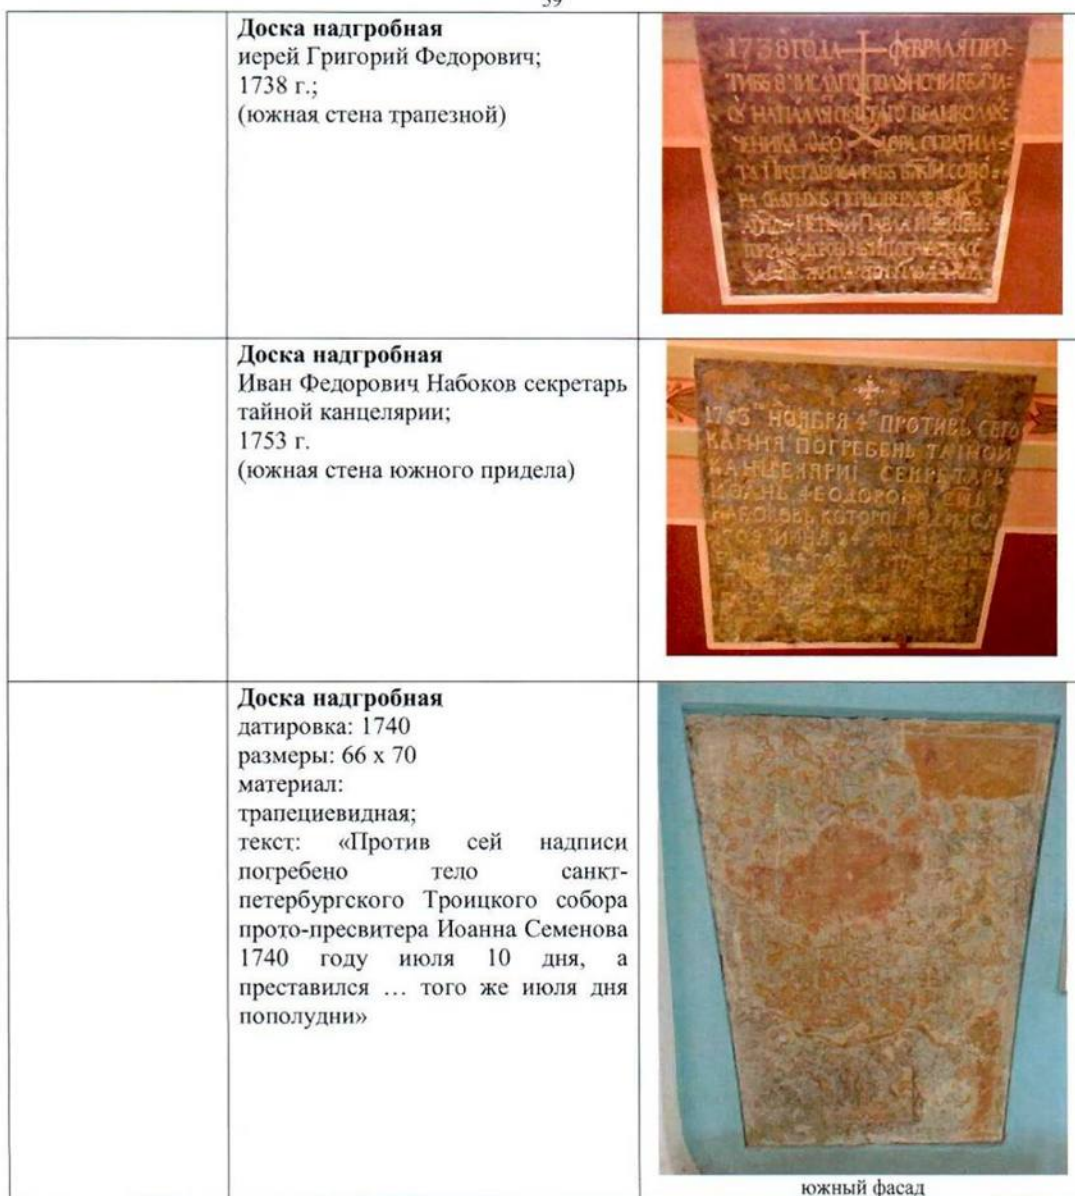 59
Доска надгробная
иерей Григорий Федорович;
1738 г.;
(южная стена трапезной)
1738 ГОДА ФЕВРАЛЯ ПРО-
Доска надгробная
Иван Федорович Набоков секретарь
тайной канцелярии;
1753 г.
(южная стена южного придела)
1753 НОЯБРЯ 4 ПРОТИВЪ СЕГО
КАМНЯ ПОГРЕБЕНЬ ТАІНОИ
КАНЦЕЛЯРІІ СЕКРЕТАРЬ
Доска надгробная
датировка: 1740
размеры: 66 х 70
материал:
трапециевидная;
текст: «Против сей надписи
погребено тело санкт-
петербургского Троицкого собора
прото-пресвитера Иоанна Семенова
1740 году июля 10 дня, а
преставился … того же июля дня
пополудни»
южный фасад